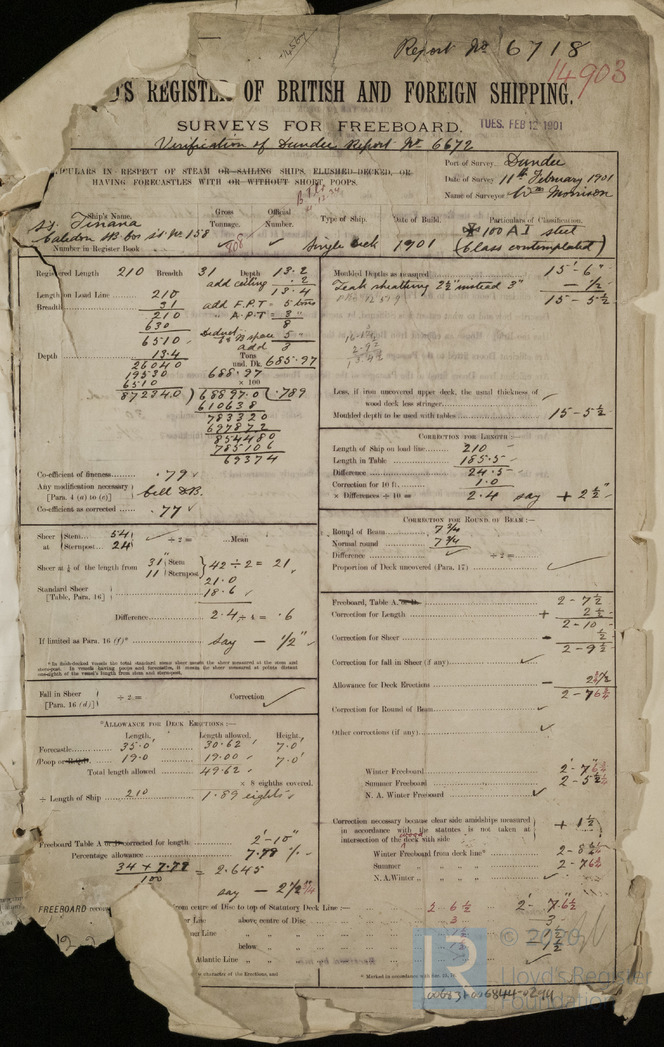 Report No 6718
14903
REGISTER OF BRITISH AND FOREIGN SHIPPING.
SURVEYS FOR FREEBOARD.
TUES. FEB 12 1901
Verification of Dundee Report No 6672
CULARS IN RESPECT OF STEAM OR SAILING SHIPS, FLUSH-DECKED, OR
HAVING FORECASTLES WITH OR WITHOUT SHORT POOPS.
Port of Survey Dundee
Date of Survey 11th February 1901
Name of Surveyor Wm Morrison
Ship's Name. Gross Tonnage. Official Number. Type of Ship. Date of Build. Particulars of Classification.
S.S. Tinana
Caledon SB Co's No 158
Number in Register Book
Single deck 1901
100 A1 steel
(Class contemplated)
Registered Length 210 Breadth 31 Depth 13.2
add ceiling .2
13.4
Length on Load Line 210
Breadth 31
210
630
6510
add F.P.T = 5 tons
" A.P.T = 3 "
8
add 3
Depth 13.4
26040
19530
6510
872340
Tons und. Dk. 685.97
688.97
× 100
68897.0 (.789
610638
783320
697872
854480
785106
69374
Co-efficient of fineness .79
Any modification necessary [Para. 4 (a) to (e)] Cell DB.
Co-efficient as corrected .77
Sheer at Stem 54
Sternpost 24 ÷ 2 = Mean
Sheer at 1/8 of the length from 31" Stem
11 Sternpost 42 ÷ 2 = 21
21.0
Standard Sheer [Table, Para. 16] 18.6
Difference 2.4 ÷ 4 = .6
If limited as Para. 16 (f)* say - 1/2"
* In flush-decked vessels the total standard mean sheer means the sheer measured at the stem and
stern-post. In vessels having poops and forecastles, it means the sheer measured at points distant
one-eighth of the vessel's length from stem and stern-post.
Fall in Sheer [Para. 16 (d)] ÷ 2 = Correction
*ALLOWANCE FOR DECK ERECTIONS :—
Length. Length allowed. Height.
Forecastle 35.0' 30.62 7.0'
Poop or 19.0 19.00 7.0'
Total length allowed 49.62
× 8 eighths covered.
÷ Length of Ship 210 1.89 eighths
Freeboard Table A corrected for length 2'-10"
Percentage allowance 7.78 %
34 × 7.78 = 2.645
100
say - 2 1/2" 3/4
Moulded Depths as measured 15'-6"
Teak sheathing 2 1/2" instead 3" - 1/2
15 - 5 1/2
Less, if iron uncovered upper deck, the usual thickness of
wood deck less stringer
Moulded depth to be used with tables 15-5 1/2
CORRECTION FOR LENGTH :—
Length of Ship on load line 210
Length in Table 185.5
Difference 24.5
Correction for 10 ft. 1.0
× Difference ÷ 10 = 2.4 say + 2 1/2"
CORRECTION FOR ROUND OF BEAM :—
Round of Beam 7 3/4
Normal round 7 3/4
Difference ÷ 2 =
Proportion of Deck uncovered (Para. 17)
Freeboard, Table A. 2 - 7 1/2
Correction for Length + 2 1/2
2 - 10
Correction for Sheer - 1/2
2 - 9 1/2
Correction for fall in Sheer (if any)
Allowance for Deck Erections - 2 3/4
2 - 6 3/4
Correction for Round of Beam
Other corrections (if any)
Winter Freeboard 2'-7
Summer Freeboard 2 - 5
N. A. Winter Freeboard
Correction necessary because clear side amidships measured
in accordance with the statutes is not taken at
intersection of the deck with side + 1 1/2
Winter Freeboard from deck line* 2 - 8
Summer " " " " 2 - 7
N.A. Winter " " " "
FREEBOARD from centre of Disc to top of Statutory Deck Line :—
2 - 6 1/2
2' - 7 6 1/2
above centre of Disc
3
below
Atlantic Line
characters of the Erections, and
* Marked in accordance with
© 2020
Lloyd's Register
Foundation